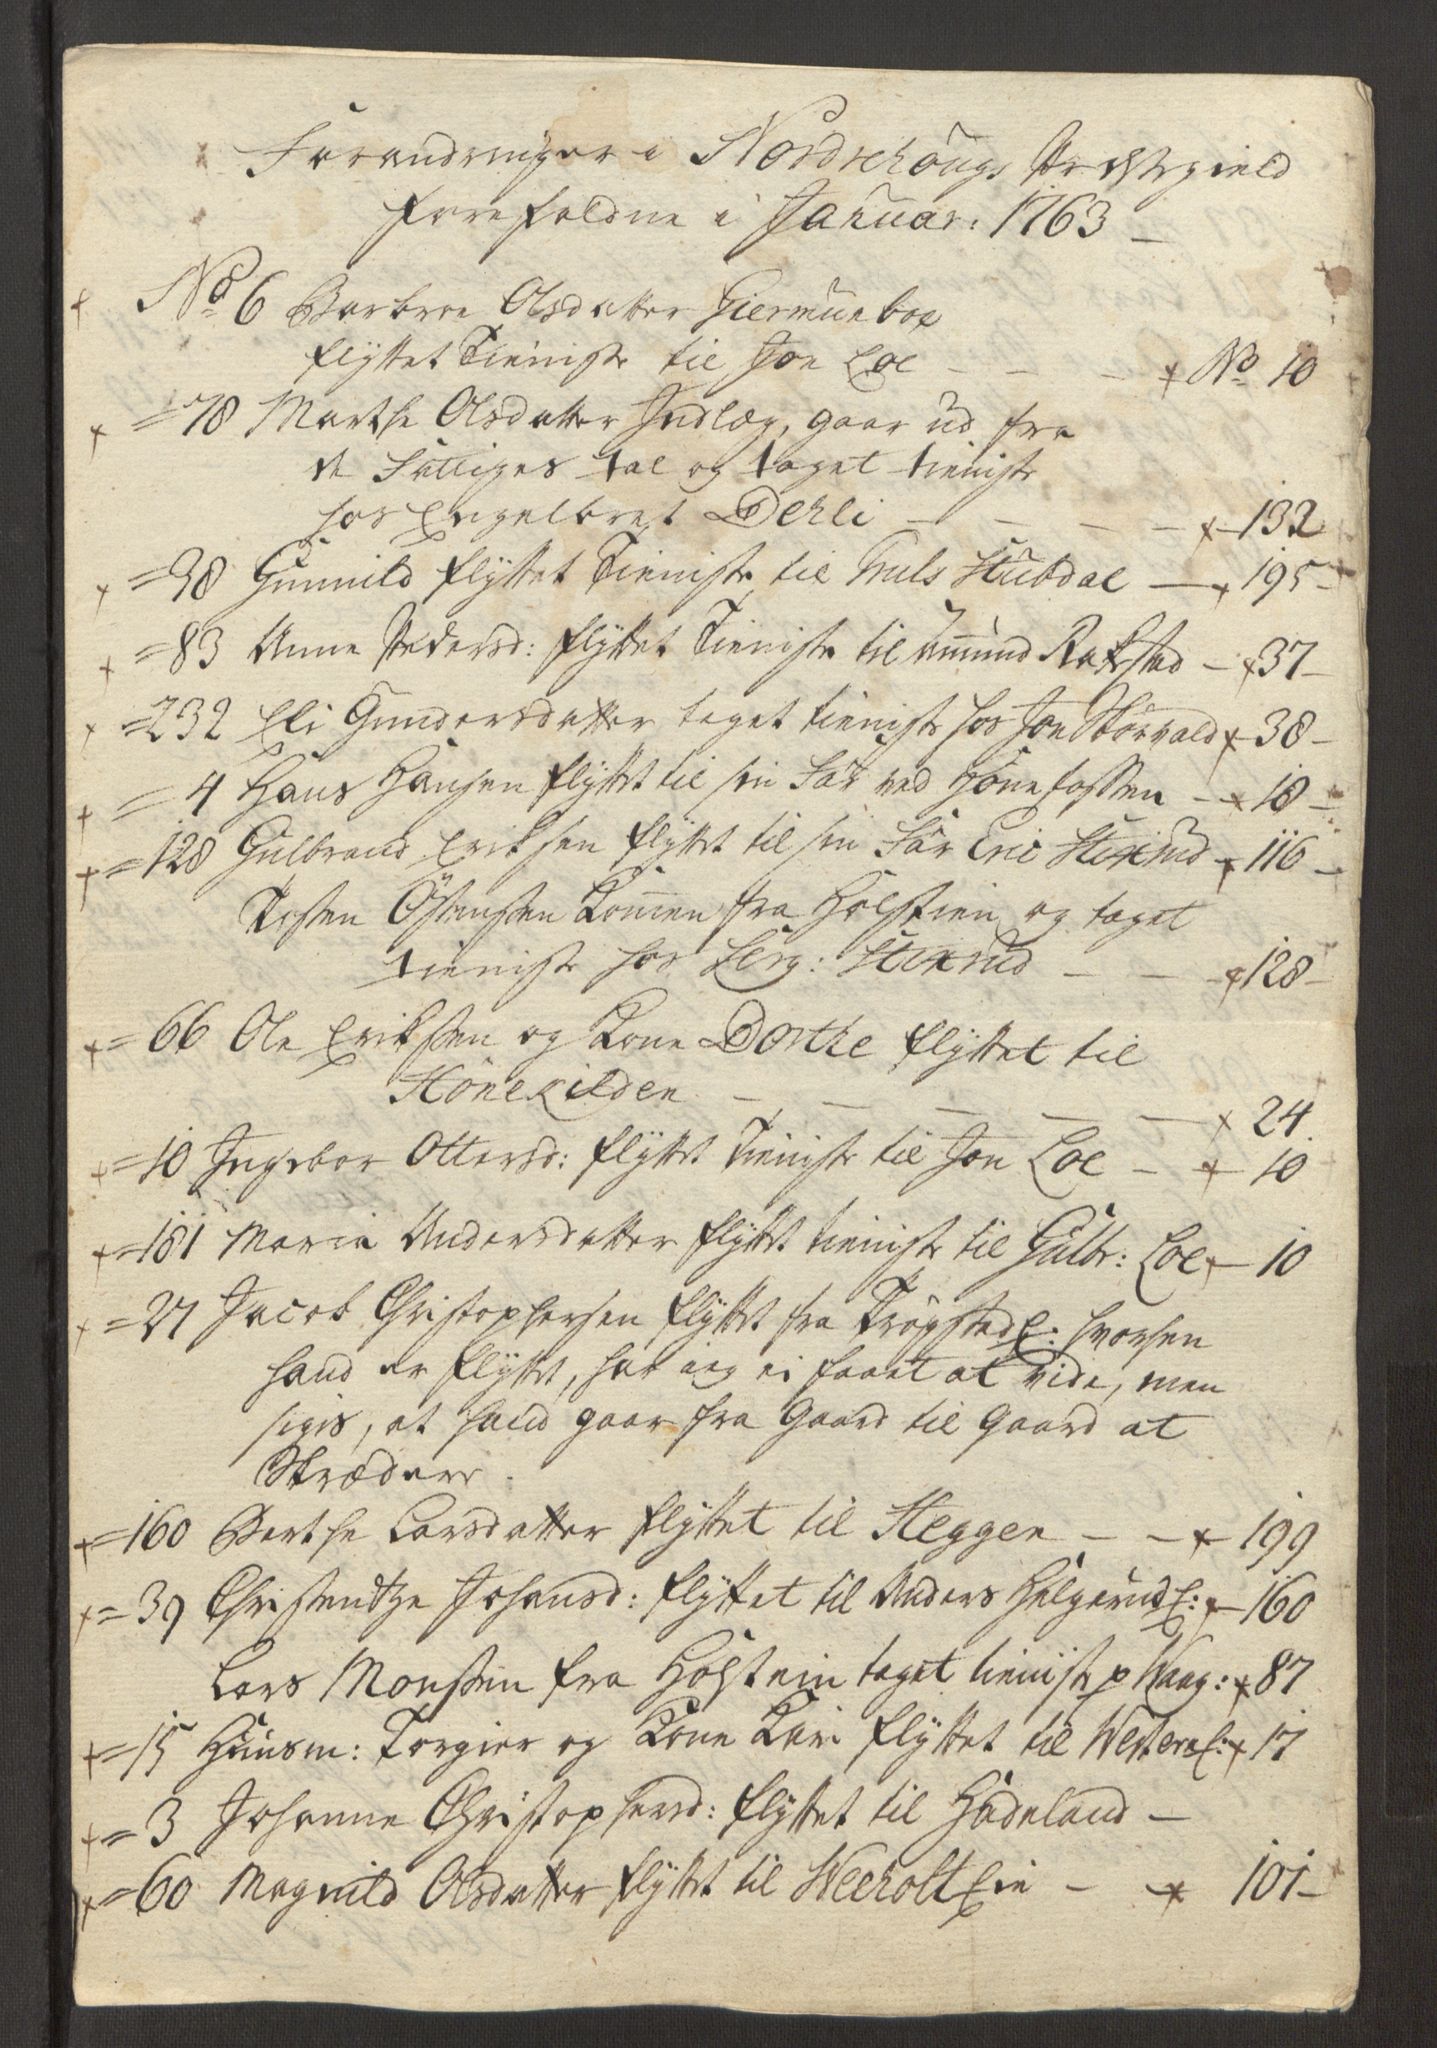 Forandringer i Nordrehougs Præstegield
forefaldne i Januar: 1763 –
No 6 Barbroe Olsdatter Giermundboe
flyttet Tieniste til Jon Loe – – – No 10
= 78 Marthe Olsdatter Indlæg, gaar ud fra
de Fattiges tal og taget tieniste
hos Engelbret Dehli – – – – 132
= 98 Gunnild flyttet Tieniste til Truls Stubdal – 195 –
= 83 Anne Pedersd: flyttet Tieniste til Amund Rakstad – 37 –
= 232 Eli Gundersdatter taget tieniste hos Jon Skörvald – 38 –
= 4 Hans Hansen flyttet til sin Far ved Hönefossen – 18 –
= 128 Gulbrand Eriksen flyttet til sin Far Eric Stixrud 116 –
Tosten Östensen kommen fra Holstein og taget
tieniste hos Serg: Stixrud – – 128 –
= 66 Ole Eriksen og Kone Dorthe flyttet til
Hönekilden – – – – – 24.
= 10 Ingebor Ottersd: flyttet Tieniste til Jon Loe – – 10
= 181 Maria Andersdatter flyttet tieniste til Gulbr: Loe – 10
= 27 Jacob Christophersen flyttet fra Trögstad E: hvorhen
hand er flyttet, har ieg ei faaet at vide, men
sigis, at hand gaar fra Gaard til Gaard at
Skrædere.
= 160 Berthe Larsdatter flyttet til Heggen – – – 199
= 39 Christendtze Johansd: flyttet til Anders Helgerud E: – 160
Lars Monsen fra Holstein taget tieniste p Waag: 87
= 15 Huusm: Torgier og Kone Kari flyttet til Western E: 17
= 3 Johanne Christophersd: flyttet til Hadeland –
= 60 Magnild Olsdatter flyttet til Weeholt Eie – – 101 –